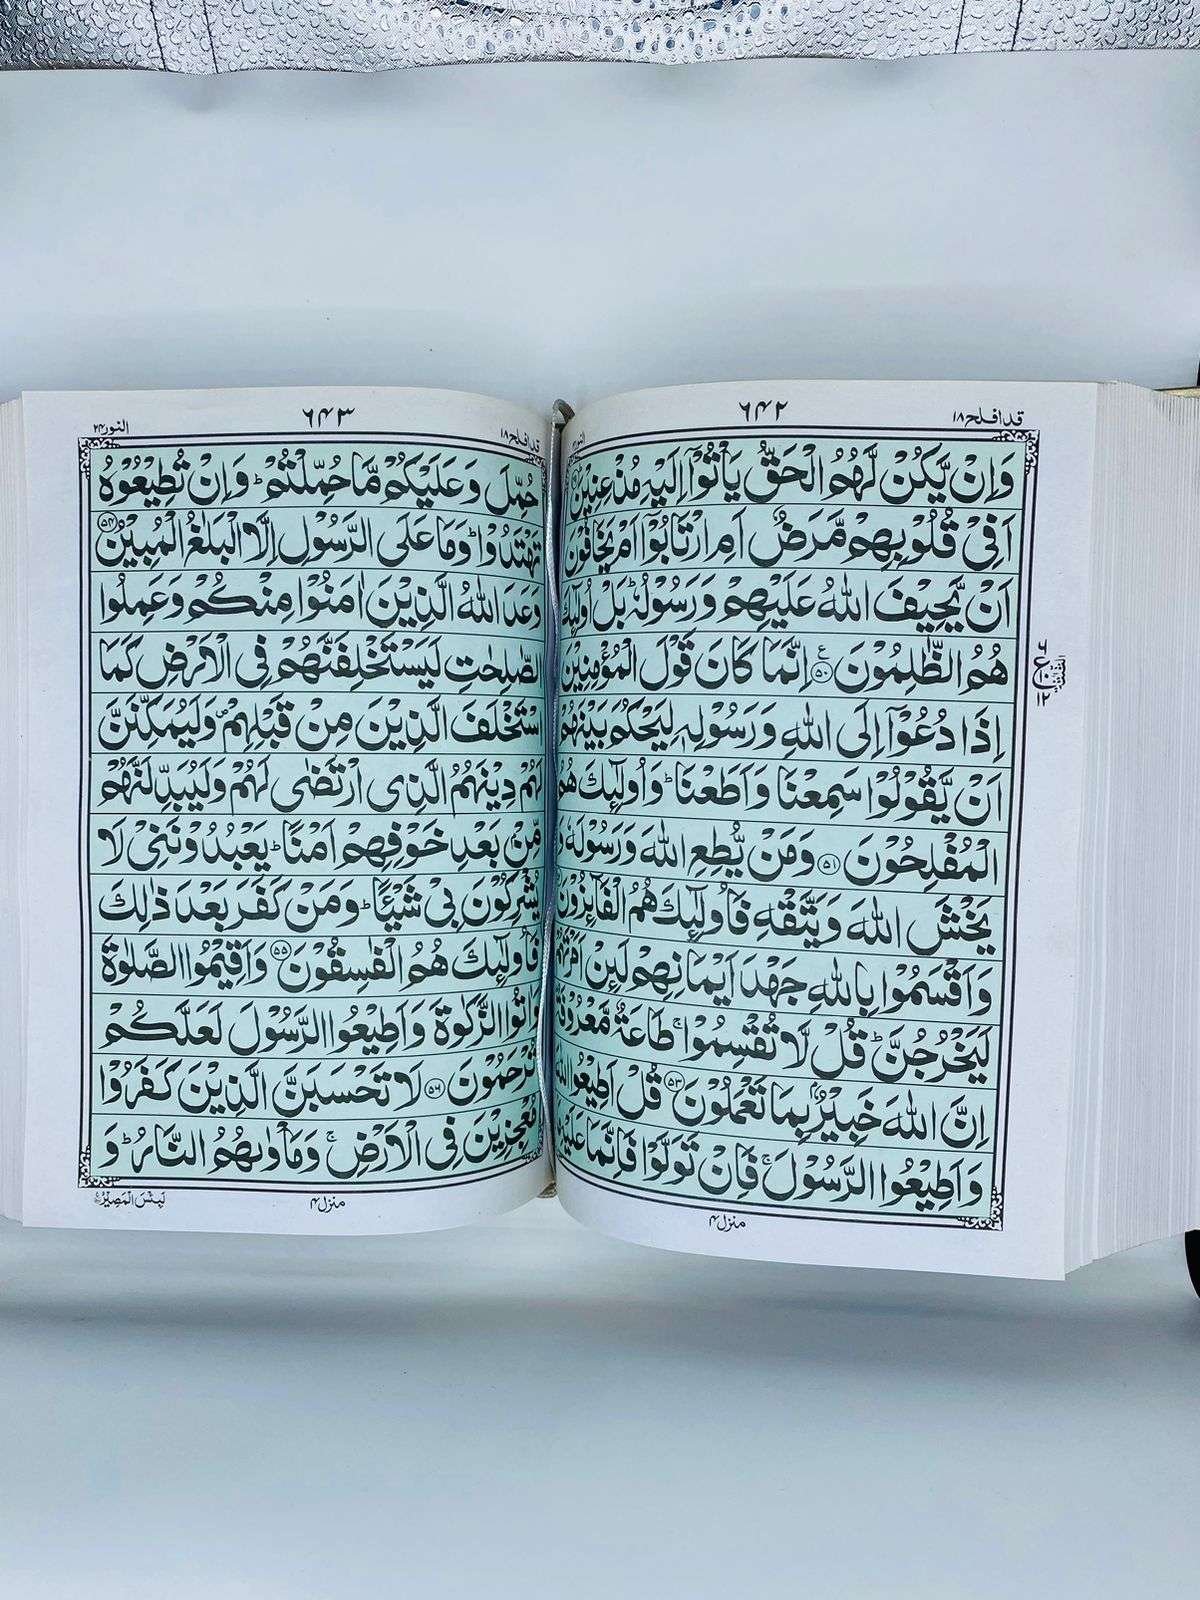 قد افلح ۱۸
۶۴۲
وَاِنْ يَّكُنْ لَّهُمُ الْحَقُّ يَاْتُوْۤا اِلَيْهِ مُذْعِنِيْنَ
اَفِيْ قُلُوْبِهِمْ مَّرَضٌ اَمِ ارْتَابُوْۤا اَمْ يَخَافُوْنَ
اَنْ يَّحِيْفَ اللّٰهُ عَلَيْهِمْ وَرَسُوْلُهٗ ؕ بَلْ اُولٰٓئِكَ
هُمُ الظّٰلِمُوْنَ ۵۰ ع اِنَّمَا كَانَ قَوْلَ الْمُؤْمِنِيْنَ
اِذَا دُعُوْۤا اِلَى اللّٰهِ وَرَسُوْلِهٖ لِيَحْكُمَ بَيْنَهُمْ
اَنْ يَّقُوْلُوْا سَمِعْنَا وَاَطَعْنَا ؕ وَاُولٰٓئِكَ هُمُ
الْمُفْلِحُوْنَ ۵۱ وَمَنْ يُّطِعِ اللّٰهَ وَرَسُوْلَهٗ وَ
يَخْشَ اللّٰهَ وَيَتَّقْهِ فَاُولٰٓئِكَ هُمُ الْفَآئِزُوْنَ
وَاَقْسَمُوْا بِاللّٰهِ جَهْدَ اَيْمَانِهِمْ لَئِنْ اَمَرْتَهُمْ
لَيَخْرُجُنَّ ؕ قُلْ لَّا تُقْسِمُوْا ۚ طَاعَةٌ مَّعْرُوْفَةٌ
اِنَّ اللّٰهَ خَبِيْرٌۢ بِمَا تَعْمَلُوْنَ ۵۳ قُلْ اَطِيْعُوا اللّٰهَ
وَاَطِيْعُوا الرَّسُوْلَ ۚ فَاِنْ تَوَلَّوْا فَاِنَّمَا عَلَيْهِ
منزل ۴
۶
ع
۱۰
۱۲
قد افلح ۱۸
۶۴۳
النور ۲۴
حُمِّلَ وَعَلَيْكُمْ مَّا حُمِّلْتُمْ ؕ وَاِنْ تُطِيْعُوْهُ
تَهْتَدُوْا ؕ وَمَا عَلَى الرَّسُوْلِ اِلَّا الْبَلٰغُ الْمُبِيْنُ ۵۴
وَعَدَ اللّٰهُ الَّذِيْنَ اٰمَنُوْا مِنْكُمْ وَعَمِلُوا
الصّٰلِحٰتِ لَيَسْتَخْلِفَنَّهُمْ فِي الْاَرْضِ كَمَا
اسْتَخْلَفَ الَّذِيْنَ مِنْ قَبْلِهِمْ ۪ وَلَيُمَكِّنَنَّ
لَهُمْ دِيْنَهُمُ الَّذِي ارْتَضٰى لَهُمْ وَلَيُبَدِّلَنَّهُمْ
مِّنْۢ بَعْدِ خَوْفِهِمْ اَمْنًا ؕ يَعْبُدُوْنَنِيْ لَا
يُشْرِكُوْنَ بِيْ شَيْـًٔا ؕ وَمَنْ كَفَرَ بَعْدَ ذٰلِكَ
فَاُولٰٓئِكَ هُمُ الْفٰسِقُوْنَ ۵۵ وَاَقِيْمُوا الصَّلٰوةَ
وَاٰتُوا الزَّكٰوةَ وَاَطِيْعُوا الرَّسُوْلَ لَعَلَّكُمْ
تُرْحَمُوْنَ ۵۶ لَا تَحْسَبَنَّ الَّذِيْنَ كَفَرُوْا
مُعْجِزِيْنَ فِي الْاَرْضِ ۚ وَمَاْوٰىهُمُ النَّارُ ؕ وَ
لَبِئْسَ الْمَصِيْرُ
منزل ۴